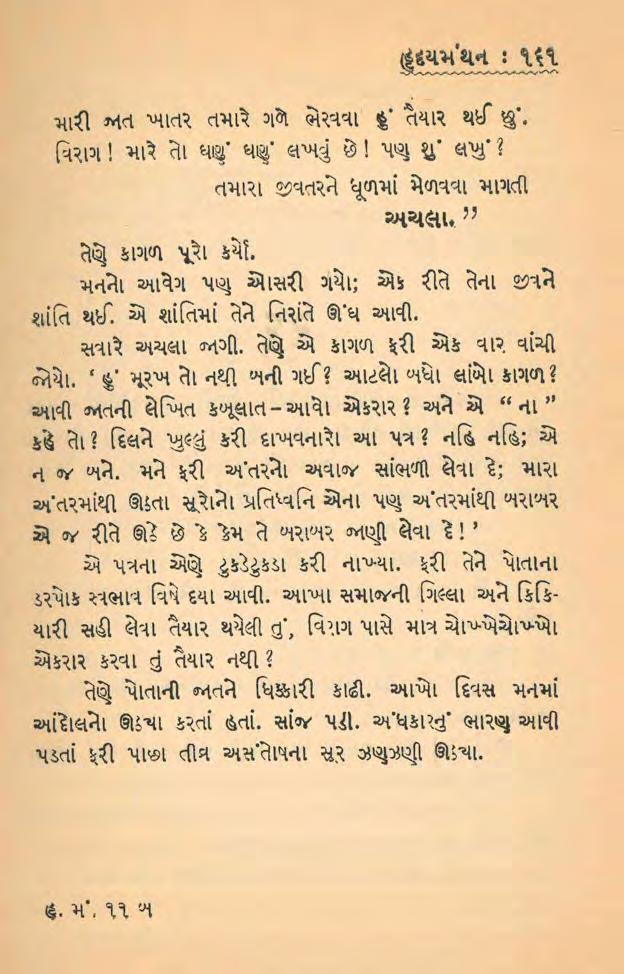 હૃદયમંથન : ૧૬૧
મારી જાત ખાતર તમારે ગળે ભેરવવા હું તૈયાર થઈ છું.
વિરાગ! મારે તો ઘણું ઘણું લખવું છે! પણ શું લખું?
તમારા જીવતરને ધૂળમાં મેળવવા માગતી
અચલા.”
તેણે કાગળ પૂરો કર્યો.
મનનો આવેગ પણ ઓસરી ગયો; એક રીતે તેના જીવને
શાંતિ થઈ. એ શાંતિમાં તેને નિરાંતે ઊંઘ આવી.
સવારે અચલા જાગી. તેણે એ કાગળ ફરી એક વાર વાંચી
જોયો. ‘હું મૂરખ તો નથી બની ગઈ? આટલો બધો લાંબો કાગળ?
આવી જાતની લેખિત કબૂલાત–આવો એકરાર? અને એ “ના”
કહે તો? દિલને ખુલ્લું કરી દાખવનારો આ પત્ર? નહિ નહિ; એ
ન જ બને. મને ફરી અંતરનો અવાજ સાંભળી લેવા દે; મારા
અંતરમાંથી ઊઠતા સૂરોનો પ્રતિધ્વનિ એના પણ અંતરમાંથી બરાબર
એ જ રીતે ઊઠે છે કે કેમ તે બરાબર જાણી લેવા દે!’
એ પત્રના એણે ટુકડેટુકડા કરી નાખ્યા. ફરી તેને પોતાના
ડરપોક સ્વભાવ વિષે દયા આવી. આખા સમાજની ગિલ્લા અને કિકિ-
યારી સહી લેવા તૈયાર થયેલી તું, વિરાગ પાસે માત્ર ચોખ્ખેચોખ્ખો
એકરાર કરવા તું તૈયાર નથી?
તેણે પોતાની જાતને ધિક્કારી કાઢી. આખો દિવસ મનમાં
આંદોલનો ઊઠ્યા કરતાં હતાં. સાંજ પડી. અંધકારનું ભારણ આવી
પડતાં ફરી પાછા તીવ્ર અસંતોષના સૂર ઝણુઝણી ઊઠ્યા.
હ. મં. ૧૧ બ